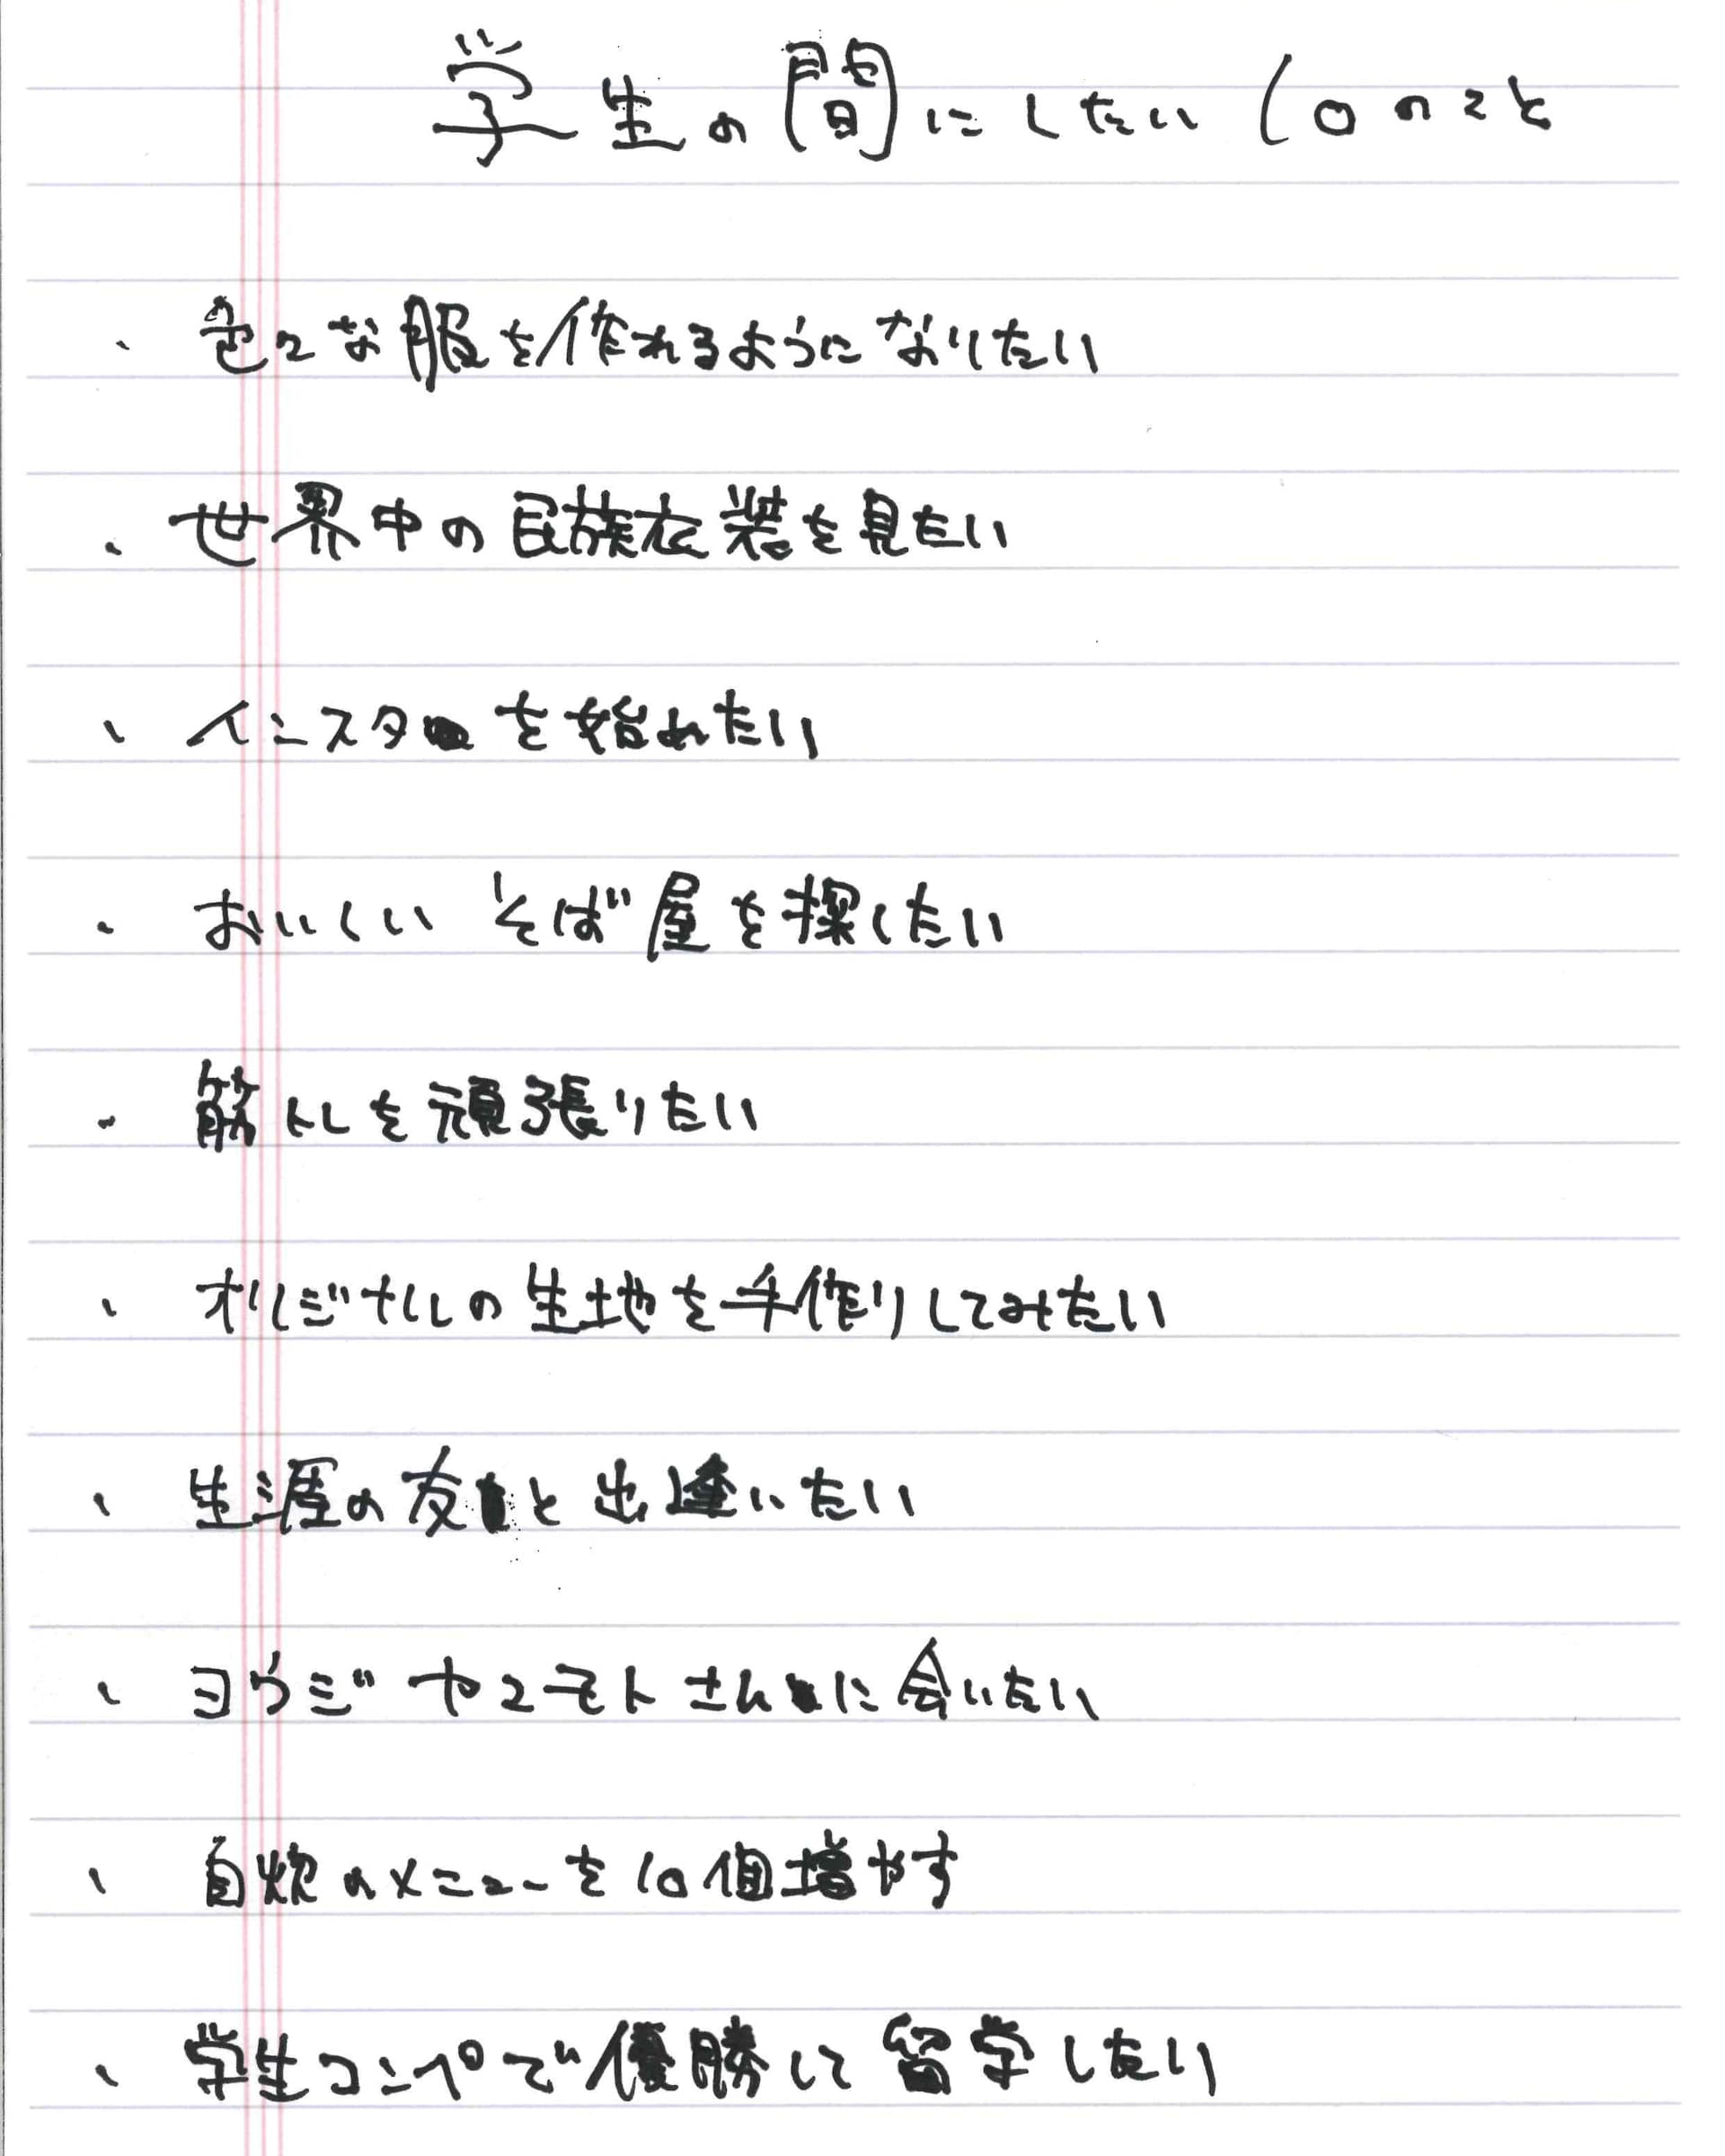 学生の間にしたい10のこと
・色々な服を作れるようになりたい
・世界中の民族衣装を見たい
・インスタを始めたい
・おいしいそば屋を探したい
・筋トレを頑張りたい
・オリジナルの生地を手作りしてみたい
・生涯の友と出逢いたい
・ヨウジヤマモトさんに会いたい
・自炊のメニューを10個増やす
・学生コンペで優勝して留学したい